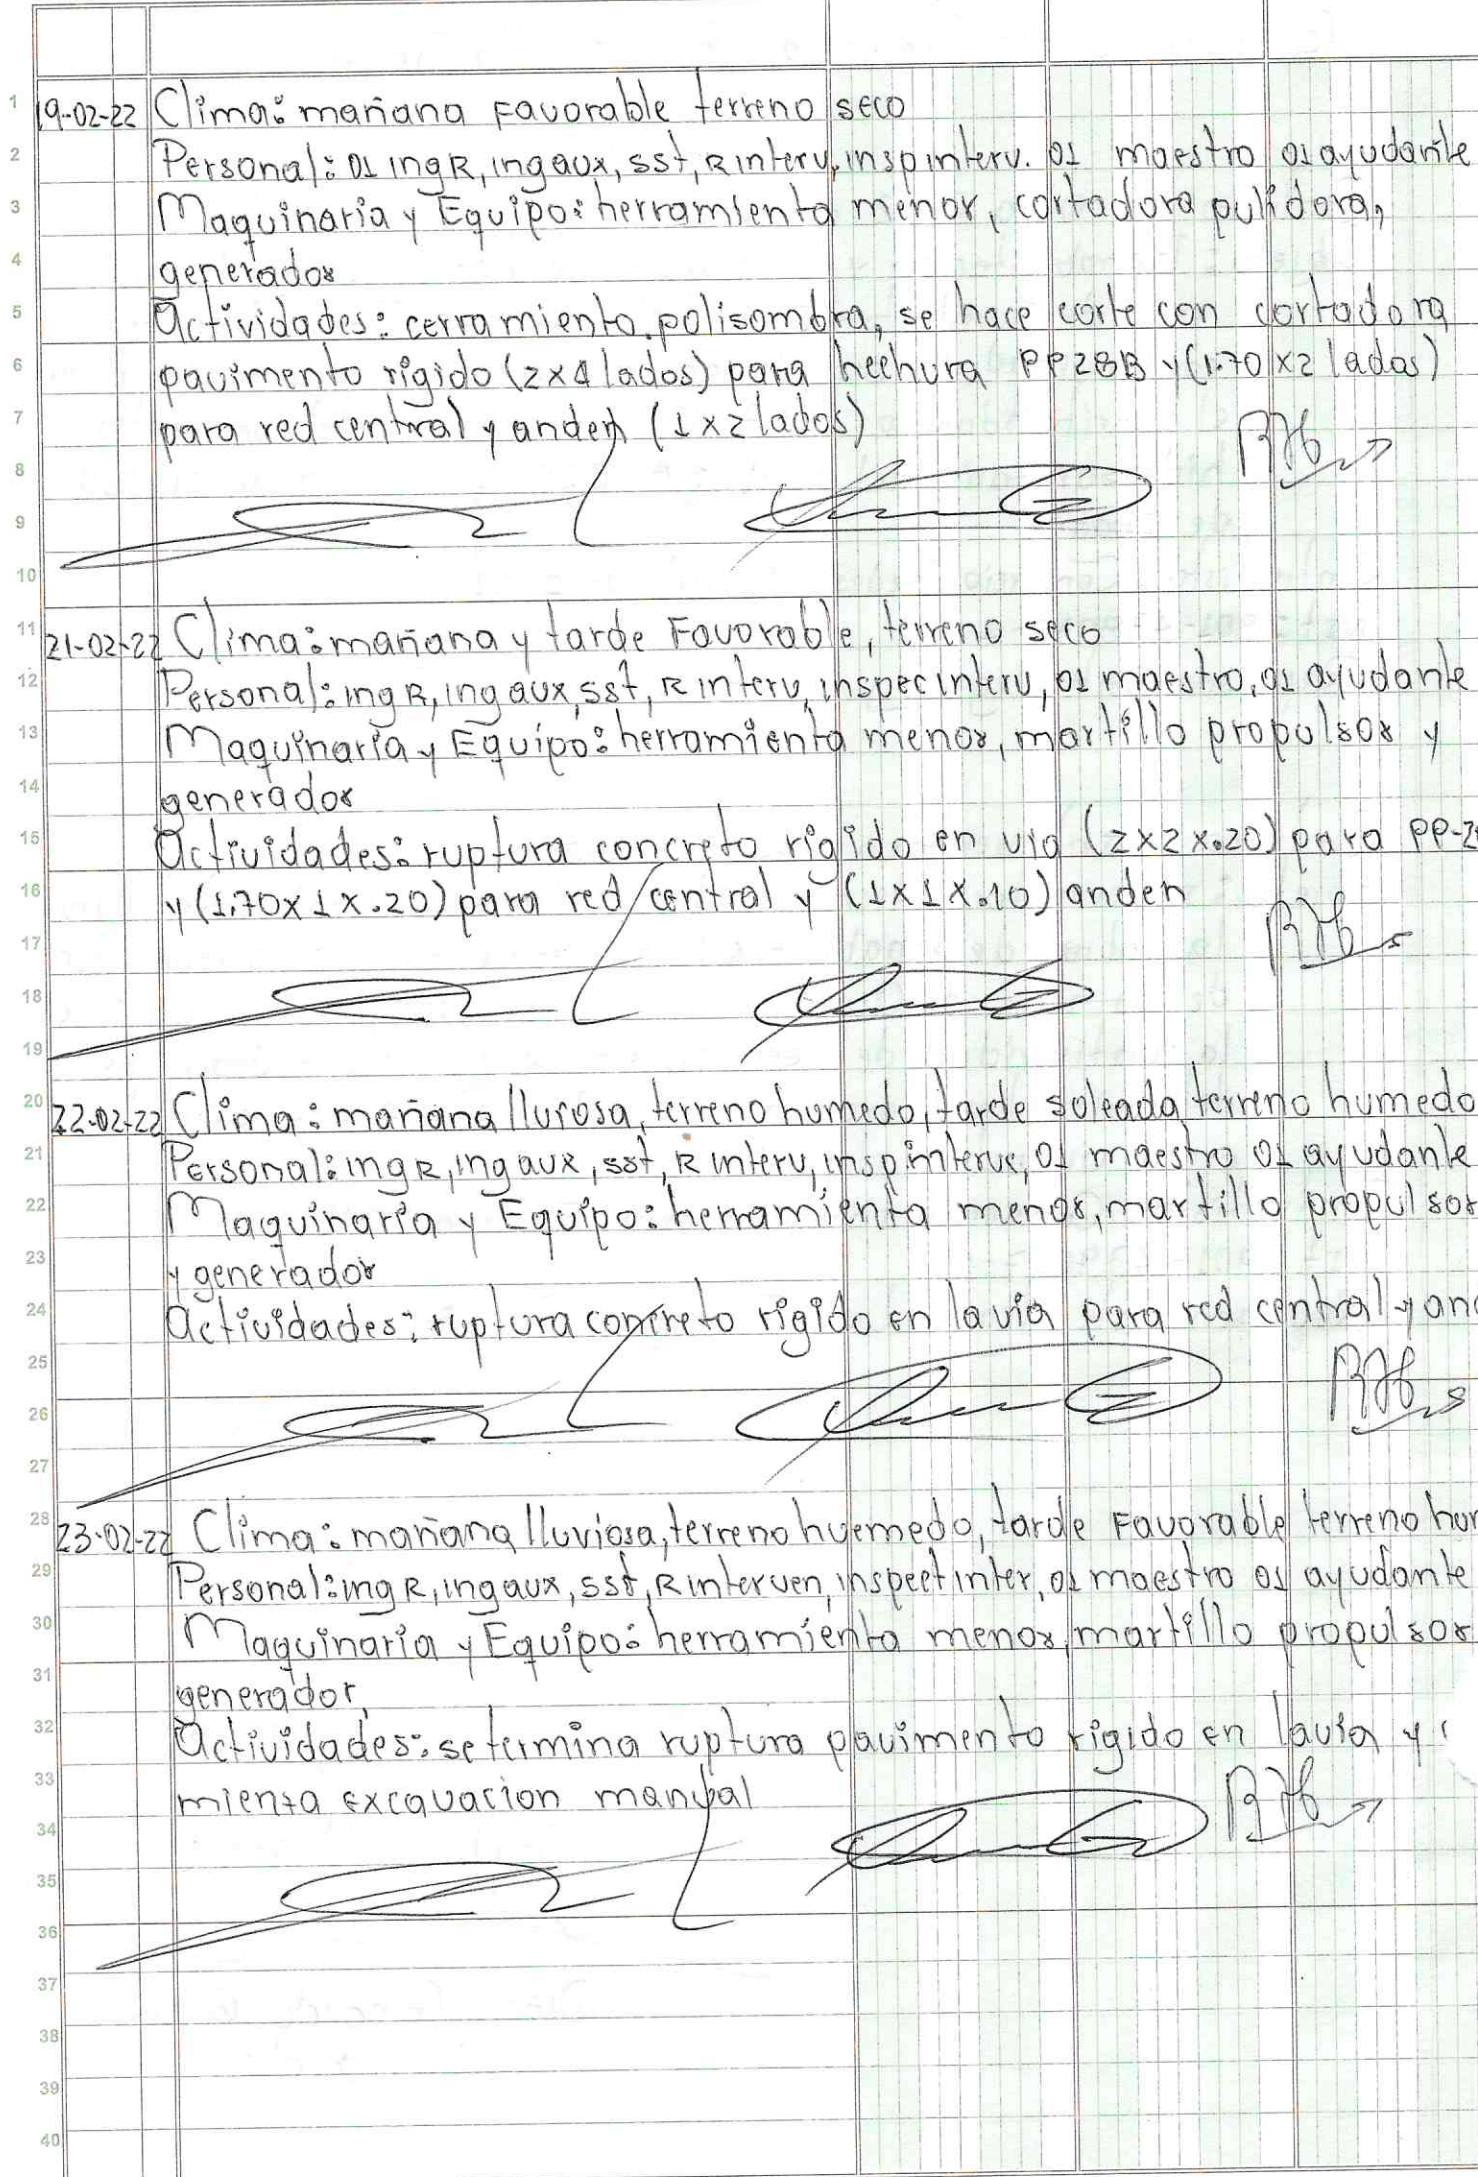 1
19-02-22 Clima: mañana Favorable terreno seco
2
Personal: 01 ingR, ingaux, sst, R interv, inspinterv. 01 maestro 01 ayudante
3
Maquinaria y Equipo: herramienta menor, cortadora pulidora,
4
generador
5
Actividades: cerramiento polisombra, se hace corte con cortadora
6
pavimento rigido (2x4 lados) para hechura PP28B y (1.70 x2 lados)
7
para red central y anden (1x2 lados)
8
9
10
11
21-02-22 Clima: mañana y tarde Favorable, terreno seco
12
Personal: ing R, ing aux, sst, R interv, inspec interv, 01 maestro, 01 ayudante
13
Maquinaria y Equipo: herramienta menor, martillo propulsor y
14
generador
15
Actividades: ruptura concreto rigido en via (2x2x.20) para PP-2
16
y (1.70x1x.20) para red central y (1x1x.10) anden
17
18
19
20
22-02-22 Clima: mañana lluvosa, terreno humedo, tarde soleada terreno humedo
21
Personal: ing R, ing aux, sst, R interv, insp interve, 01 maestro 01 ayudante
22
Maquinaria y Equipo: herramienta menor, martillo propulsor
23
y generador
24
Actividades: ruptura concreto rigido en la via para red central y an
25
26
27
28
23-02-22 Clima: mañana lluviosa, terreno huemedo, tarde Favorable terreno hu
29
Personal: ing R, ing aux, sst, R interven, inspect inter, 01 maestro 01 ayudante
30
Maquinaria y Equipo: herramienta menor, martillo propulsor
31
generador,
32
Actividades: se termina ruptura pavimento rigido en la via y
33
mienza excavacion manual
34
35
36
37
38
39
40